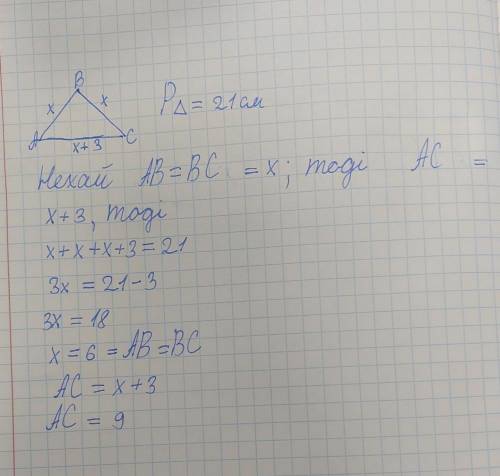 B
x x
P△ = 21 см
A C
x+3
Нехай AB = BC = x; тоді AC =
x+3, тоді
x+x+x+3=21
3x = 21-3
3x = 18
x = 6 = AB = BC
AC = x+3
AC = 9